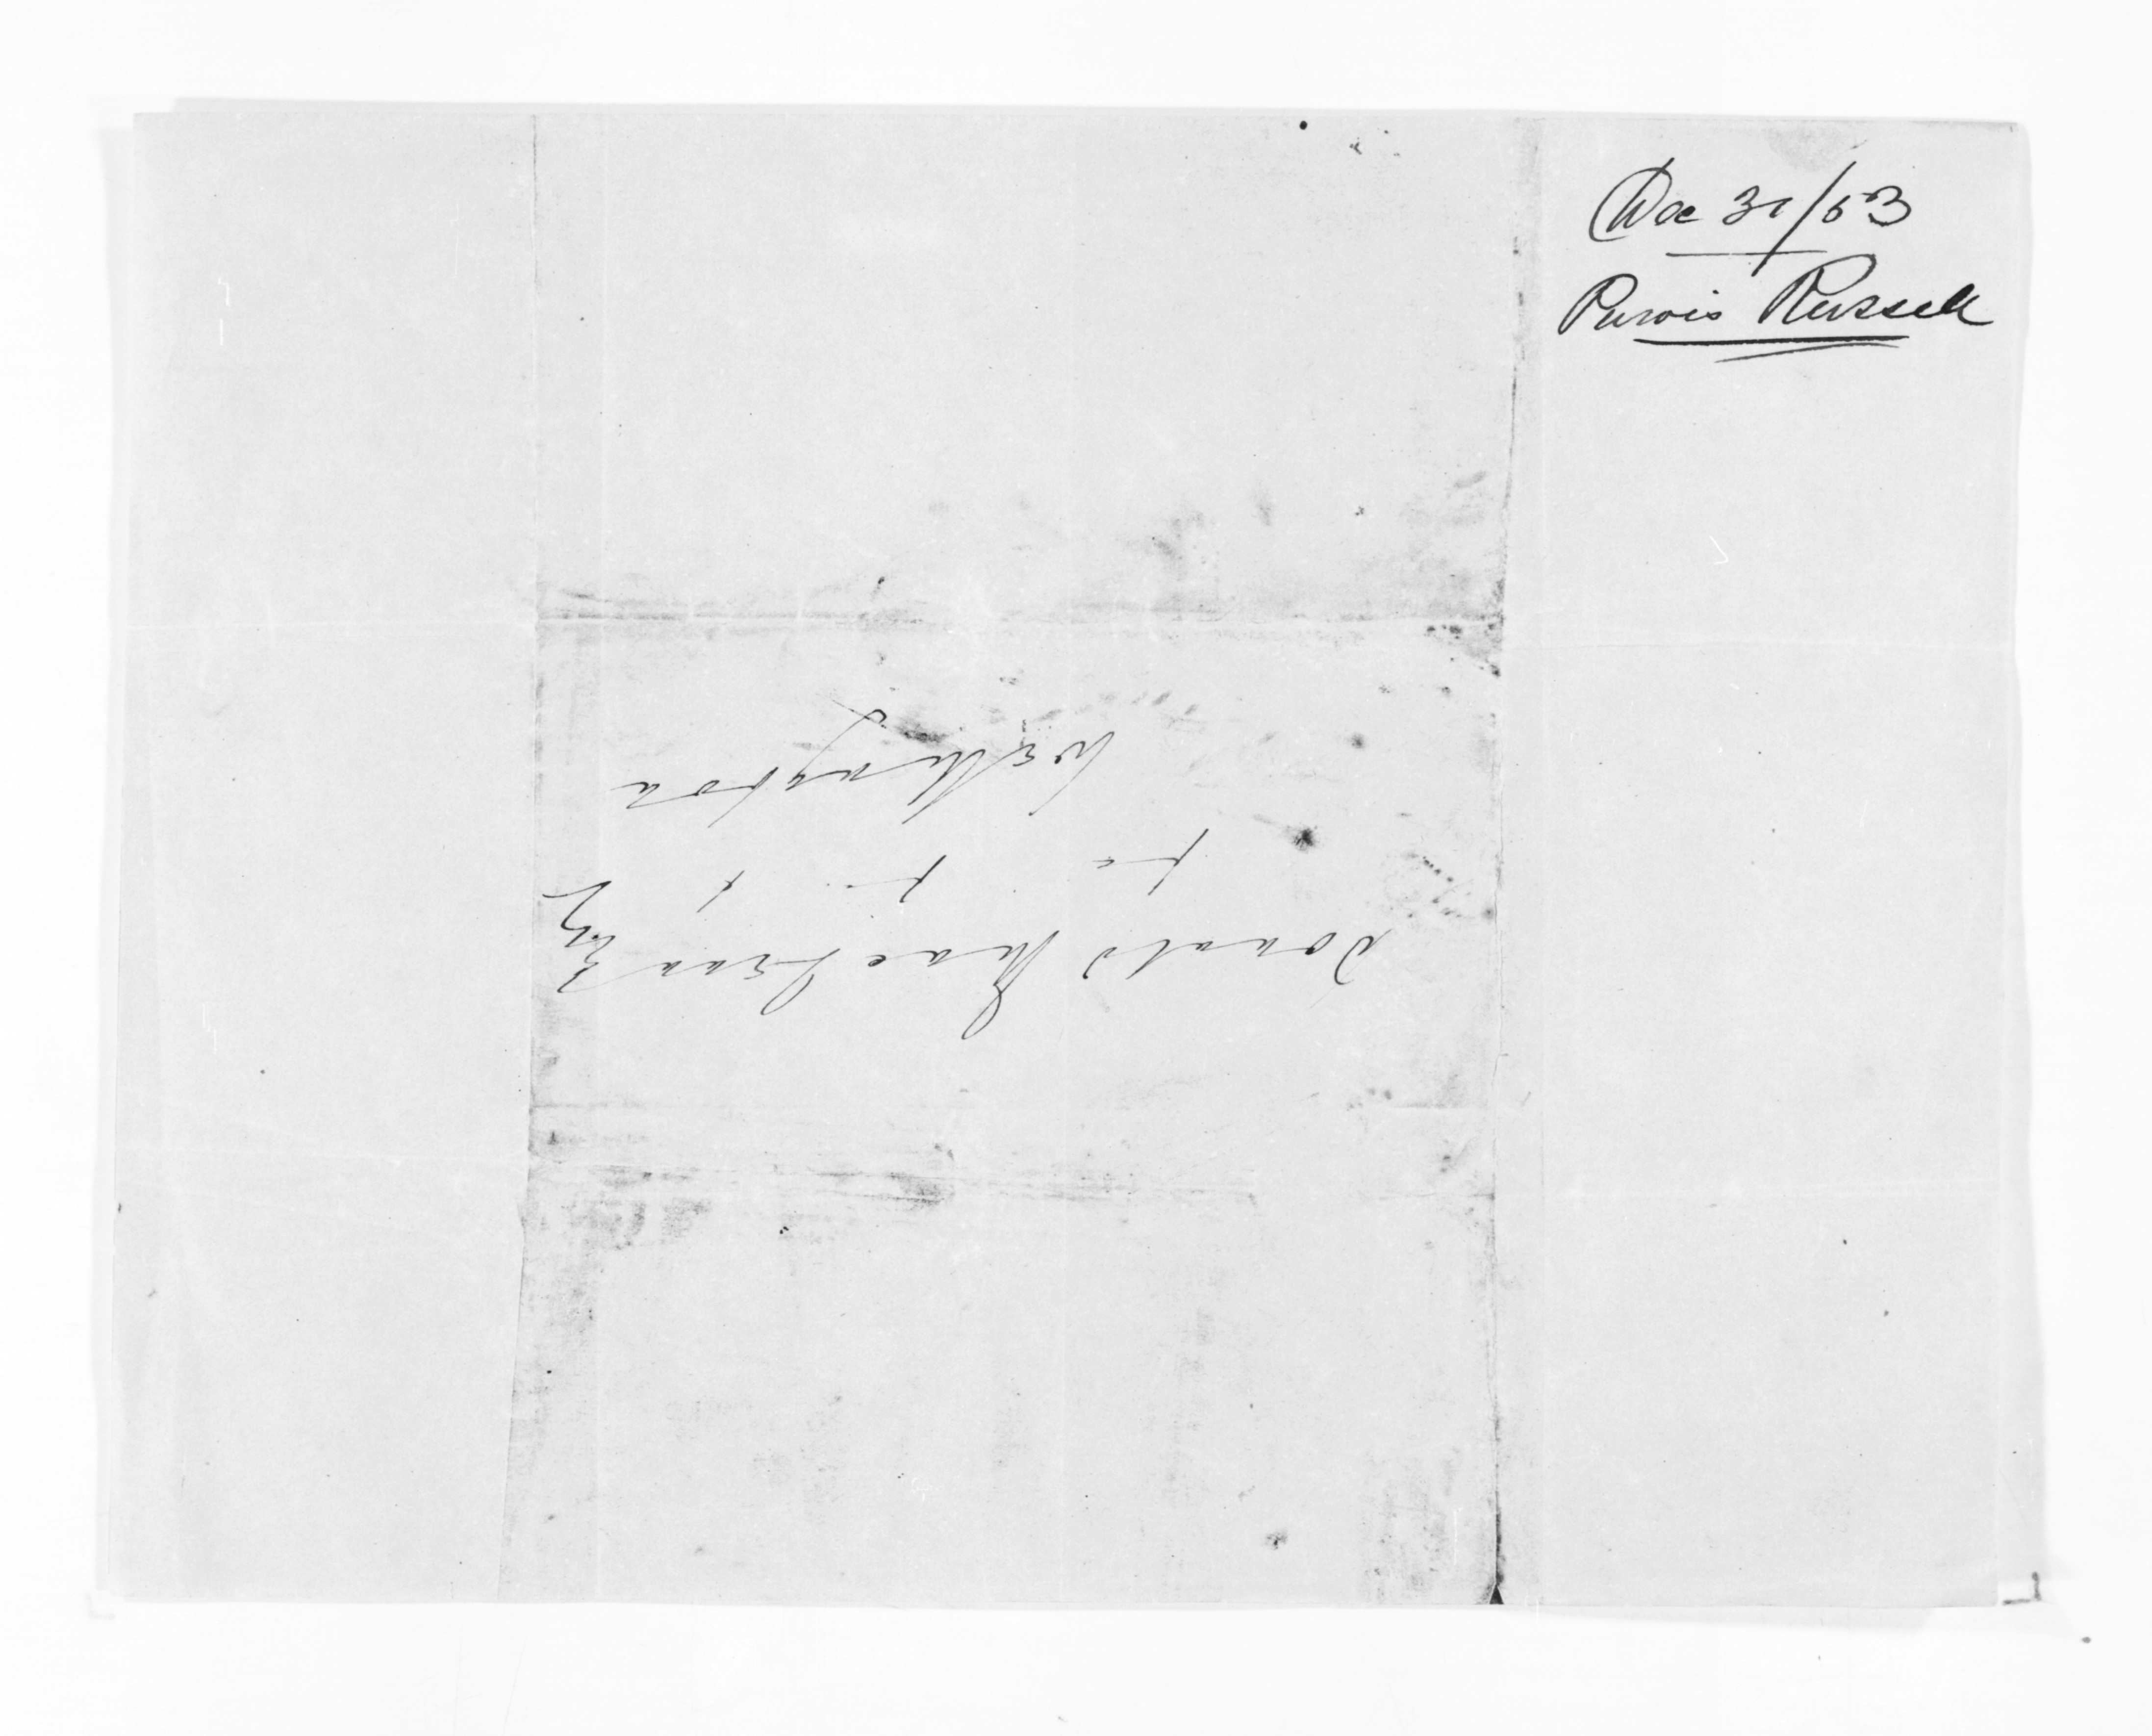 Dec 31/53
Purvis Russell
Donald MacLean Esq
&c &c &c
Wellington